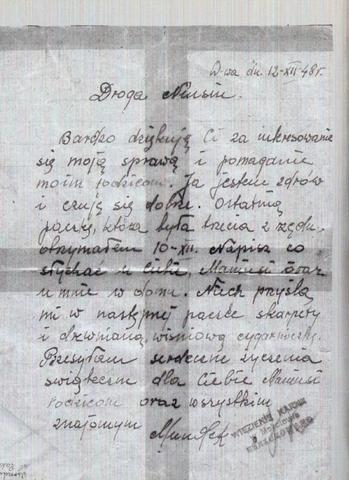 W-wa dn. 12-XII 48 r.
Droga Niusiu.
Bardzo dziękuję Ci za interesowanie
się moją sprawą i pomaganie
moim rodzicom. Ja jestem zdrów
i czuję się dobrze. Ostatnią
paczkę, która była trzecia z rzędu
otrzymałem 10-XII. Napisz co
słychać u Ciebie, Mamusi oraz
u mnie w domu. Niech przyślą
mi w następnej paczce skarpety
i drewnianą, wiśniową cygarniczkę.
Przesyłam serdeczne życzenia
świąteczne dla Ciebie Mamusi
rodziców oraz wszystkim
znajomym Mundek
WIĘZIENIE KARNE